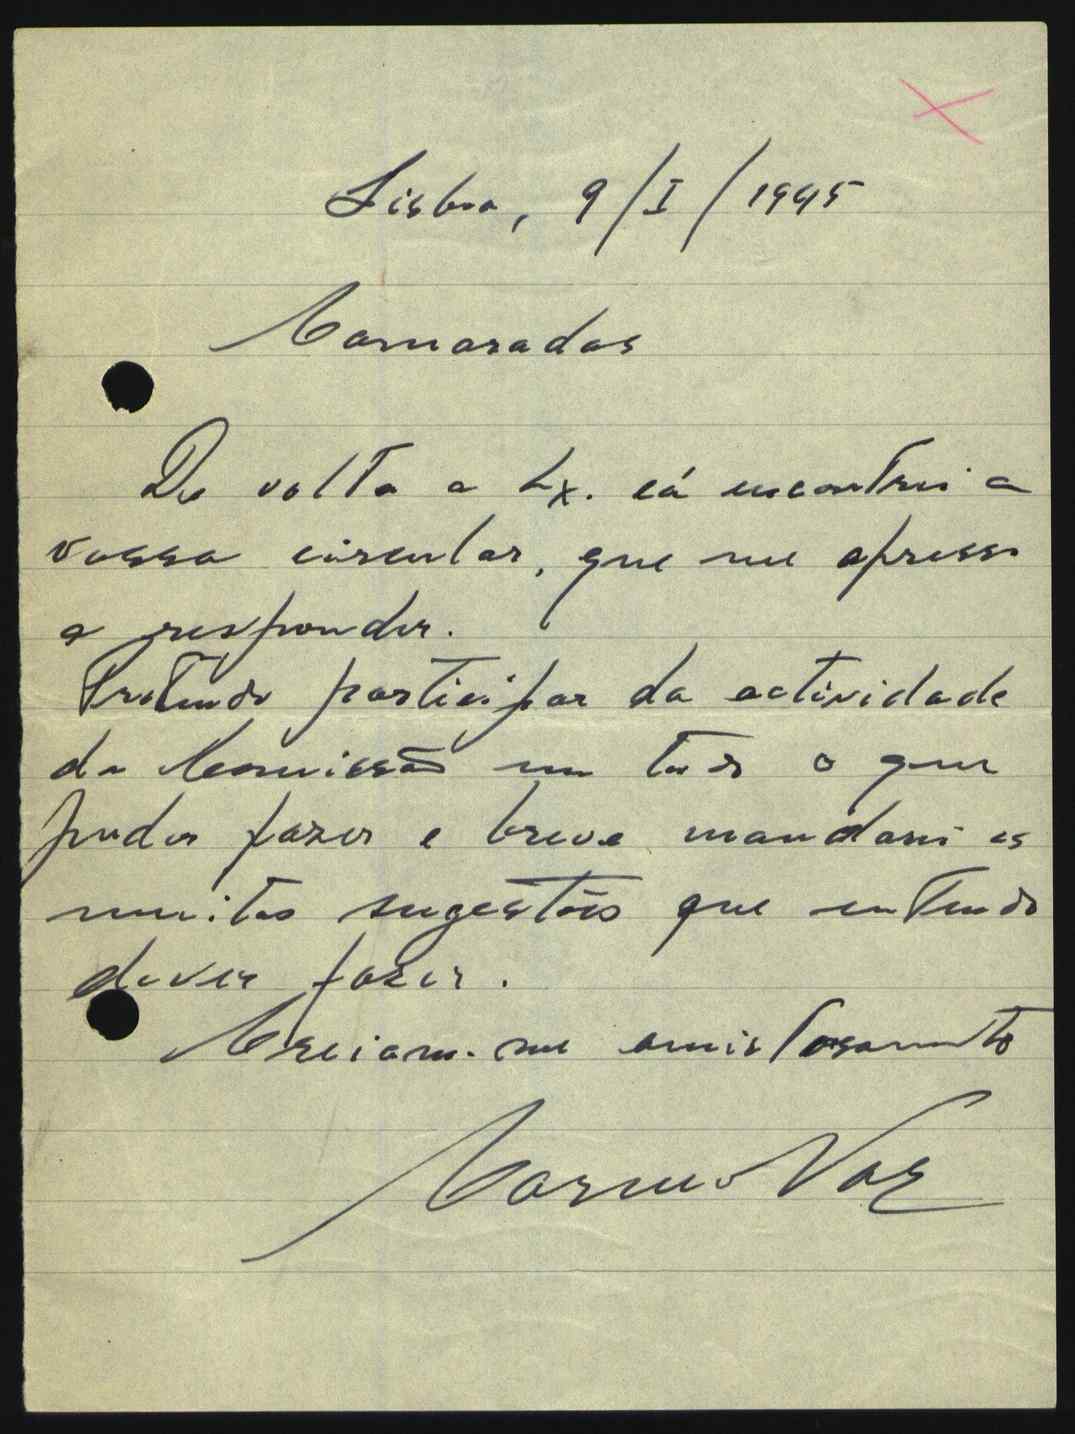 Lisboa, 9/I/1945
Camaradas
De volta a Lx. cá encontrei a
vossa circular, que me apresso
a responder.
Pretendo participar da actividade
da Comissão em tudo o que
puder fazer e breve mandarei as
muitas sugestões que entendo
dever fazer.
Creiam-me amistosamente
Carmo Vaz